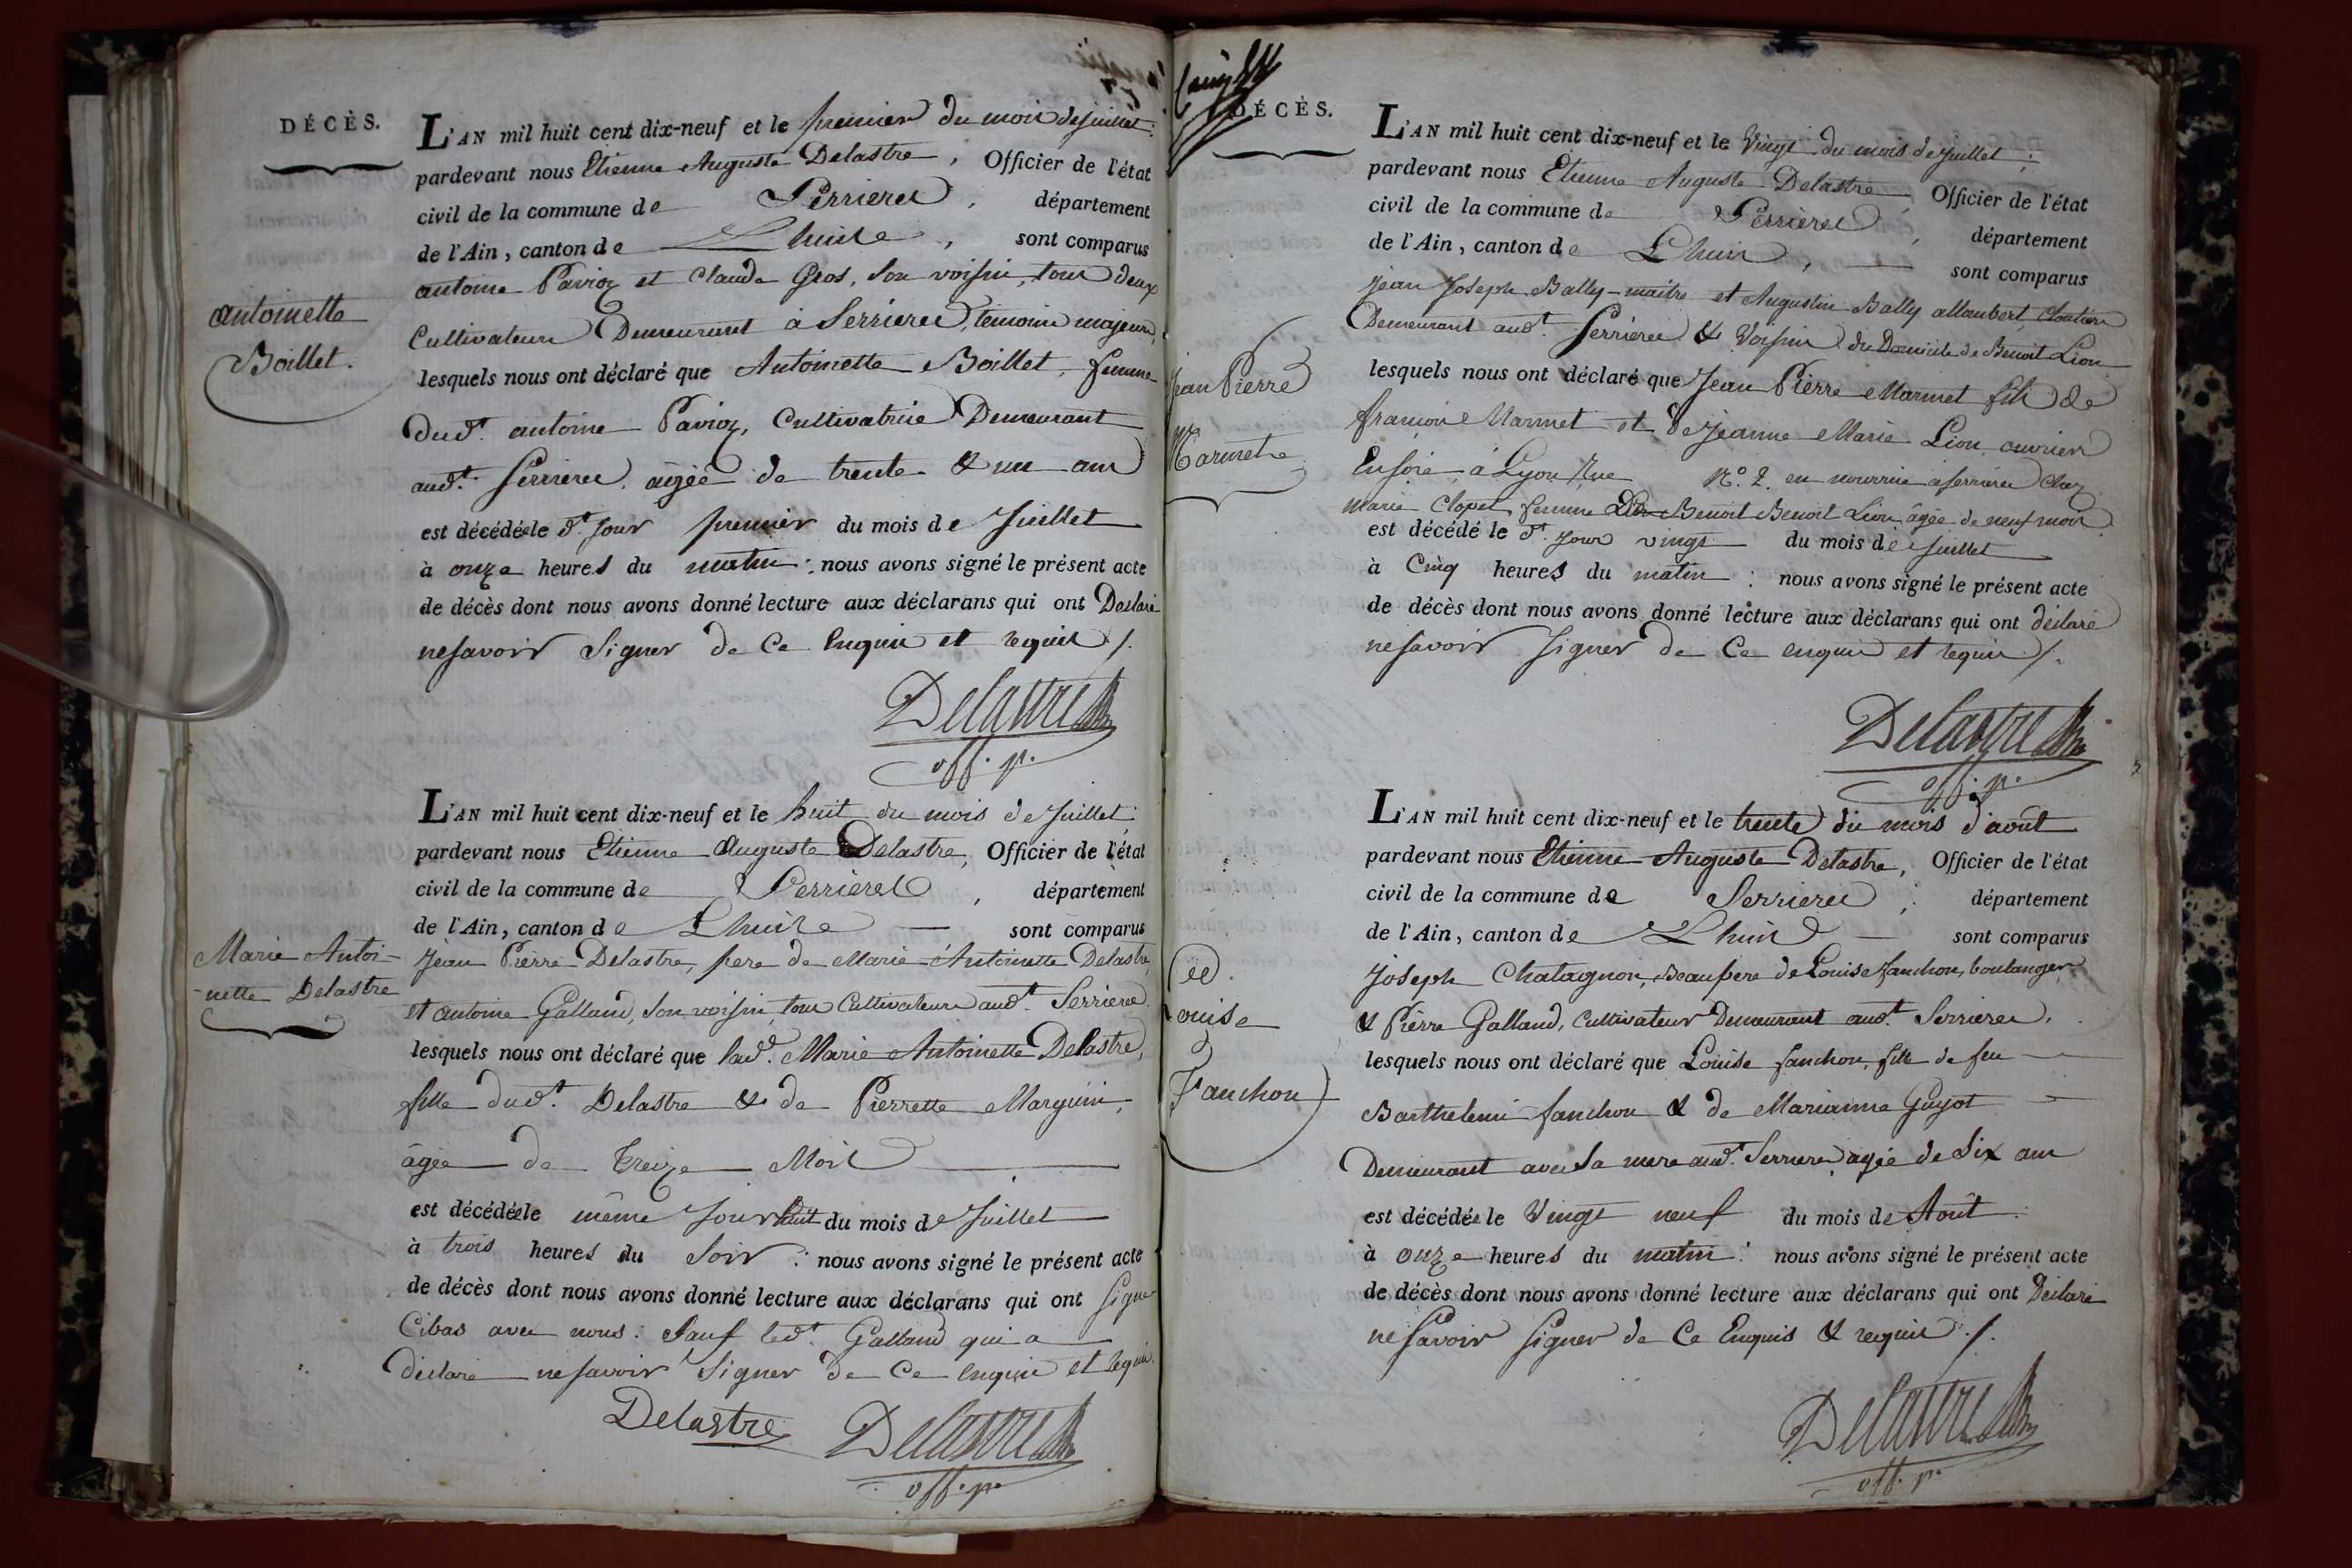 DÉCÈS.
L'AN mil huit cent dix-neuf et le premier du mois de juillet :
pardevant nous Etienne Auguste Delastre, Officier de l'état
civil de la commune de Serrieres, département
de l'Ain, canton de Lhuise, sont comparus
antoine Pavioz et Claude Gros, son voisin, tous deux
Cultivateurs Demeurant à Serrieres, temoins majeurs,
antoinette
Boillet.
lesquels nous ont déclaré que Antoinette Boillet, femme
dudt. antoine Pavioz, Cultivatrice Demeurant
audt. Serrieres, âgée de trente & un ans
est décédée le dt. Jour premier du mois de Juillet
à onze heures du matin : nous avons signé le présent acte
de décès dont nous avons donné lecture aux déclarans qui ont Déclaré
ne savoir Signer de Ce Enquis et requis /.
Delastre
off. p.
L'AN mil huit cent dix-neuf et le huit du mois de Juillet :
pardevant nous Etienne Auguste Delastre, Officier de l'état
civil de la commune de Serrieres, département
de l'Ain, canton de Lhuise sont comparus
Marie Antoi-
-nette Delastre
Jean Pierre Delastre, pere de Marie Antoinette Delastre,
et antoine Galland, son voisin, tous Cultivateurs audt. Serrieres.
lesquels nous ont déclaré que lad. Marie Antoinette Delastre,
fille dudt. Delastre & de Pierrette Marguin,
âgée de Treize Mois
est décédée le même Jour huit du mois de Juillet
à trois heures du Soir : nous avons signé le présent acte
de décès dont nous avons donné lecture aux déclarans qui ont Signé
Cibas avec nous : Sauf ledt. Galland qui a
déclaré ne savoir Signer de Ce enquis et requis.
Delastre Delastre
off. p.
DÉCÈS.
L'AN mil huit cent dix-neuf et le Vingt du mois de Juillet :
pardevant nous Etienne Auguste Delastre, Officier de l'état
civil de la commune de Serrières, département
de l'Ain, canton de Lhuis, sont comparus
Jean Joseph Bally-maitre et Augustin Bally allaubert, Cloutiers
Demeurant audt. Serrières & Voisins du Domicile de Benoit Lion
Jean Pierre
Marmet
lesquels nous ont déclaré que Jean Pierre Marmet fils de
françois Marmet et de Jeanne Marie Lion, ouvriers
En soie, à Lyon Rue N°. 2. en nourrice à Serrières Chez
Marie Clopet femme Benoit Benoit Lion âgée de neuf mois
est décédé le dt. Jour vingt du mois de Juillet
à Cinq heures du matin : nous avons signé le présent acte
de décès dont nous avons donné lecture aux déclarans qui ont déclaré
ne savoir Signer de Ce enquis et requis /.
Delastre
off. p.
L'AN mil huit cent dix-neuf et le trente du mois d'août
pardevant nous Etienne Auguste Delastre, Officier de l'état
civil de la commune de Serrieres, département
de l'Ain, canton de Lhuis sont comparus
Louise
Fanchon
Joseph Chatagnon, Beaupere de Louise fanchon, boulanger
& Pierre Galland, Cultivateur Demeurant audt. Serrieres,
lesquels nous ont déclaré que Louise fanchon, fille de feu
Barthelemi fanchon & de Marianne Guyot
Demeurant avec Sa mere audt. Serrieres, agée de Six ans
est décédée le Vingt neuf du mois de Août
à onze heures du matin : nous avons signé le présent acte
de décès dont nous avons donné lecture aux déclarans qui ont Déclaré
ne savoir Signer de Ce Enquis & requis /.
Delastre
off. p.